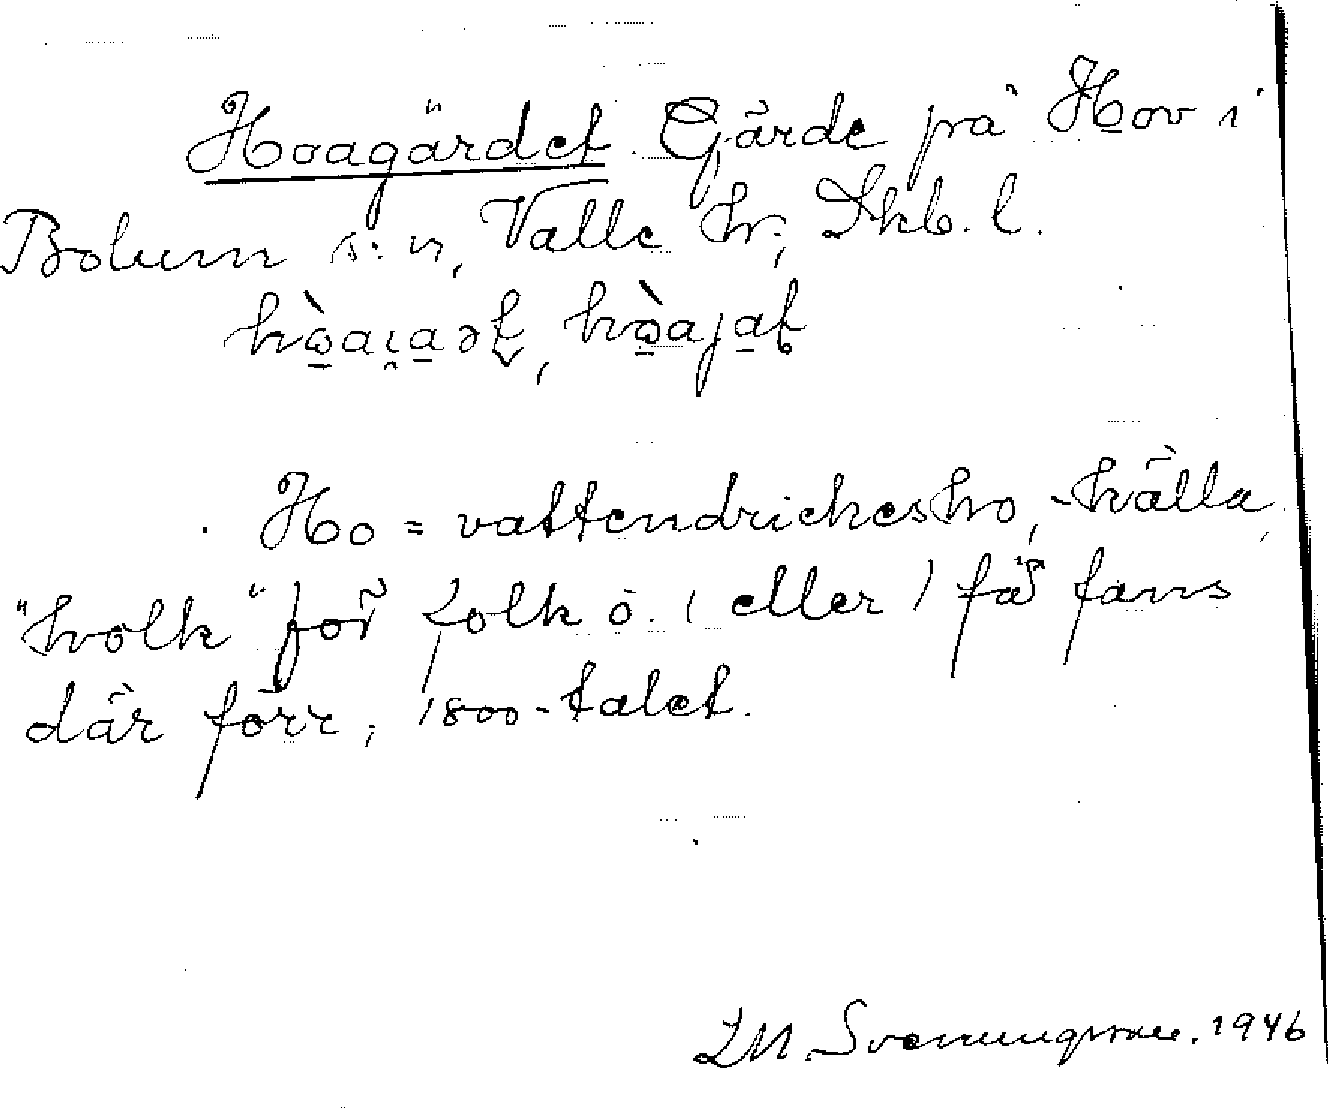 Hoagärdet. Gärde på Hov i
Bolum s:n, Valle hr, Skb. l.
Ho = vattendrickesho, -källa,
"hvolk" för folk o. (eller) fä fans
där förr, 1800-talet.
Svenungsson. 1946